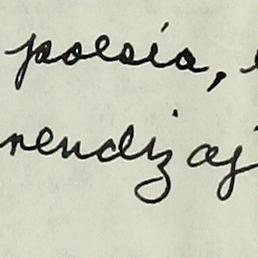 poesía,
rendizaj